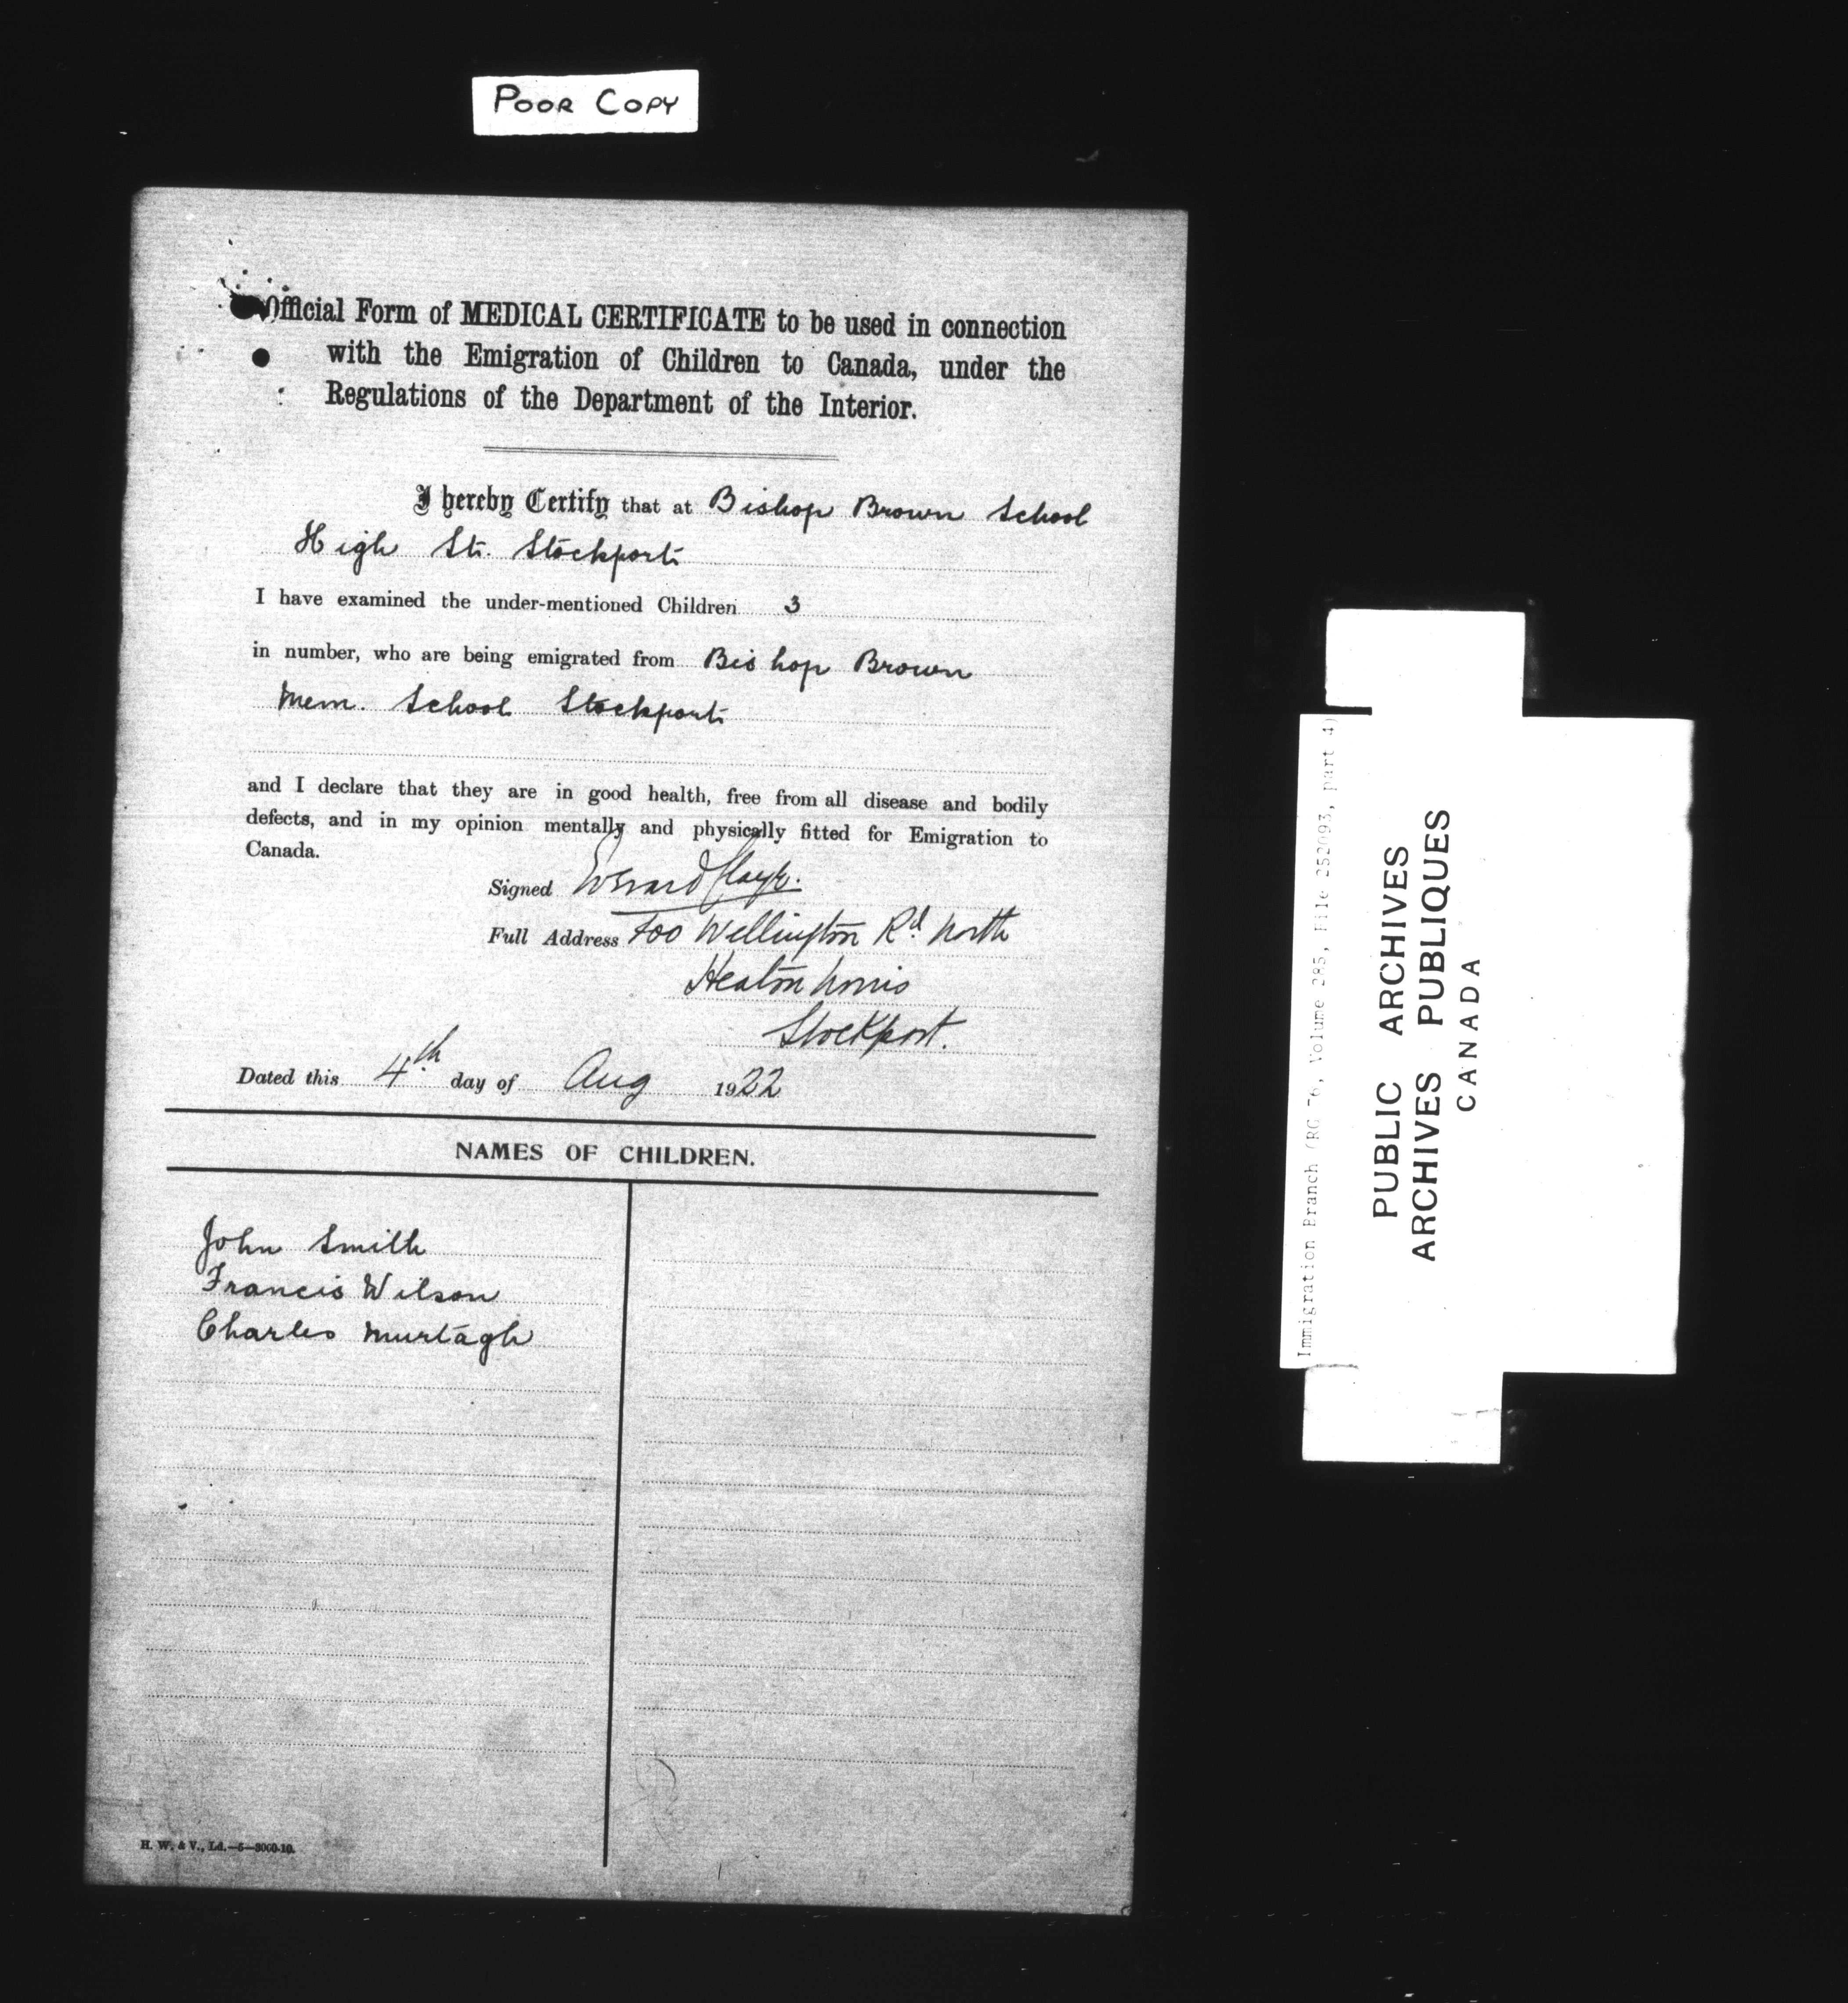 POOR COPY
Official Form of MEDICAL CERTIFICATE to be used in connection
with the Emigration of Children to Canada, under the
Regulations of the Department of the Interior.
I hereby Certify that at Bishop Brown School
High St. Stockport
I have examined the under-mentioned Children 3
in number, who are being emigrated from Bishop Brown
Mem. School Stockport
and I declare that they are in good health, free from all disease and bodily
defects, and in my opinion mentally and physically fitted for Emigration to
Canada.
Signed
Full Address Wellington Rd. North
Heaton Norris
Stockport.
Dated this 4th day of Aug 1922
NAMES OF CHILDREN.
John Smith
Francis Wilson
Charles Murtagh
H. W. & V., Ld.—5—3000-10.
Immigration Branch (RG 76, Volume 285, File 252093, part 4)
PUBLIC ARCHIVES
ARCHIVES PUBLIQUES
CANADA